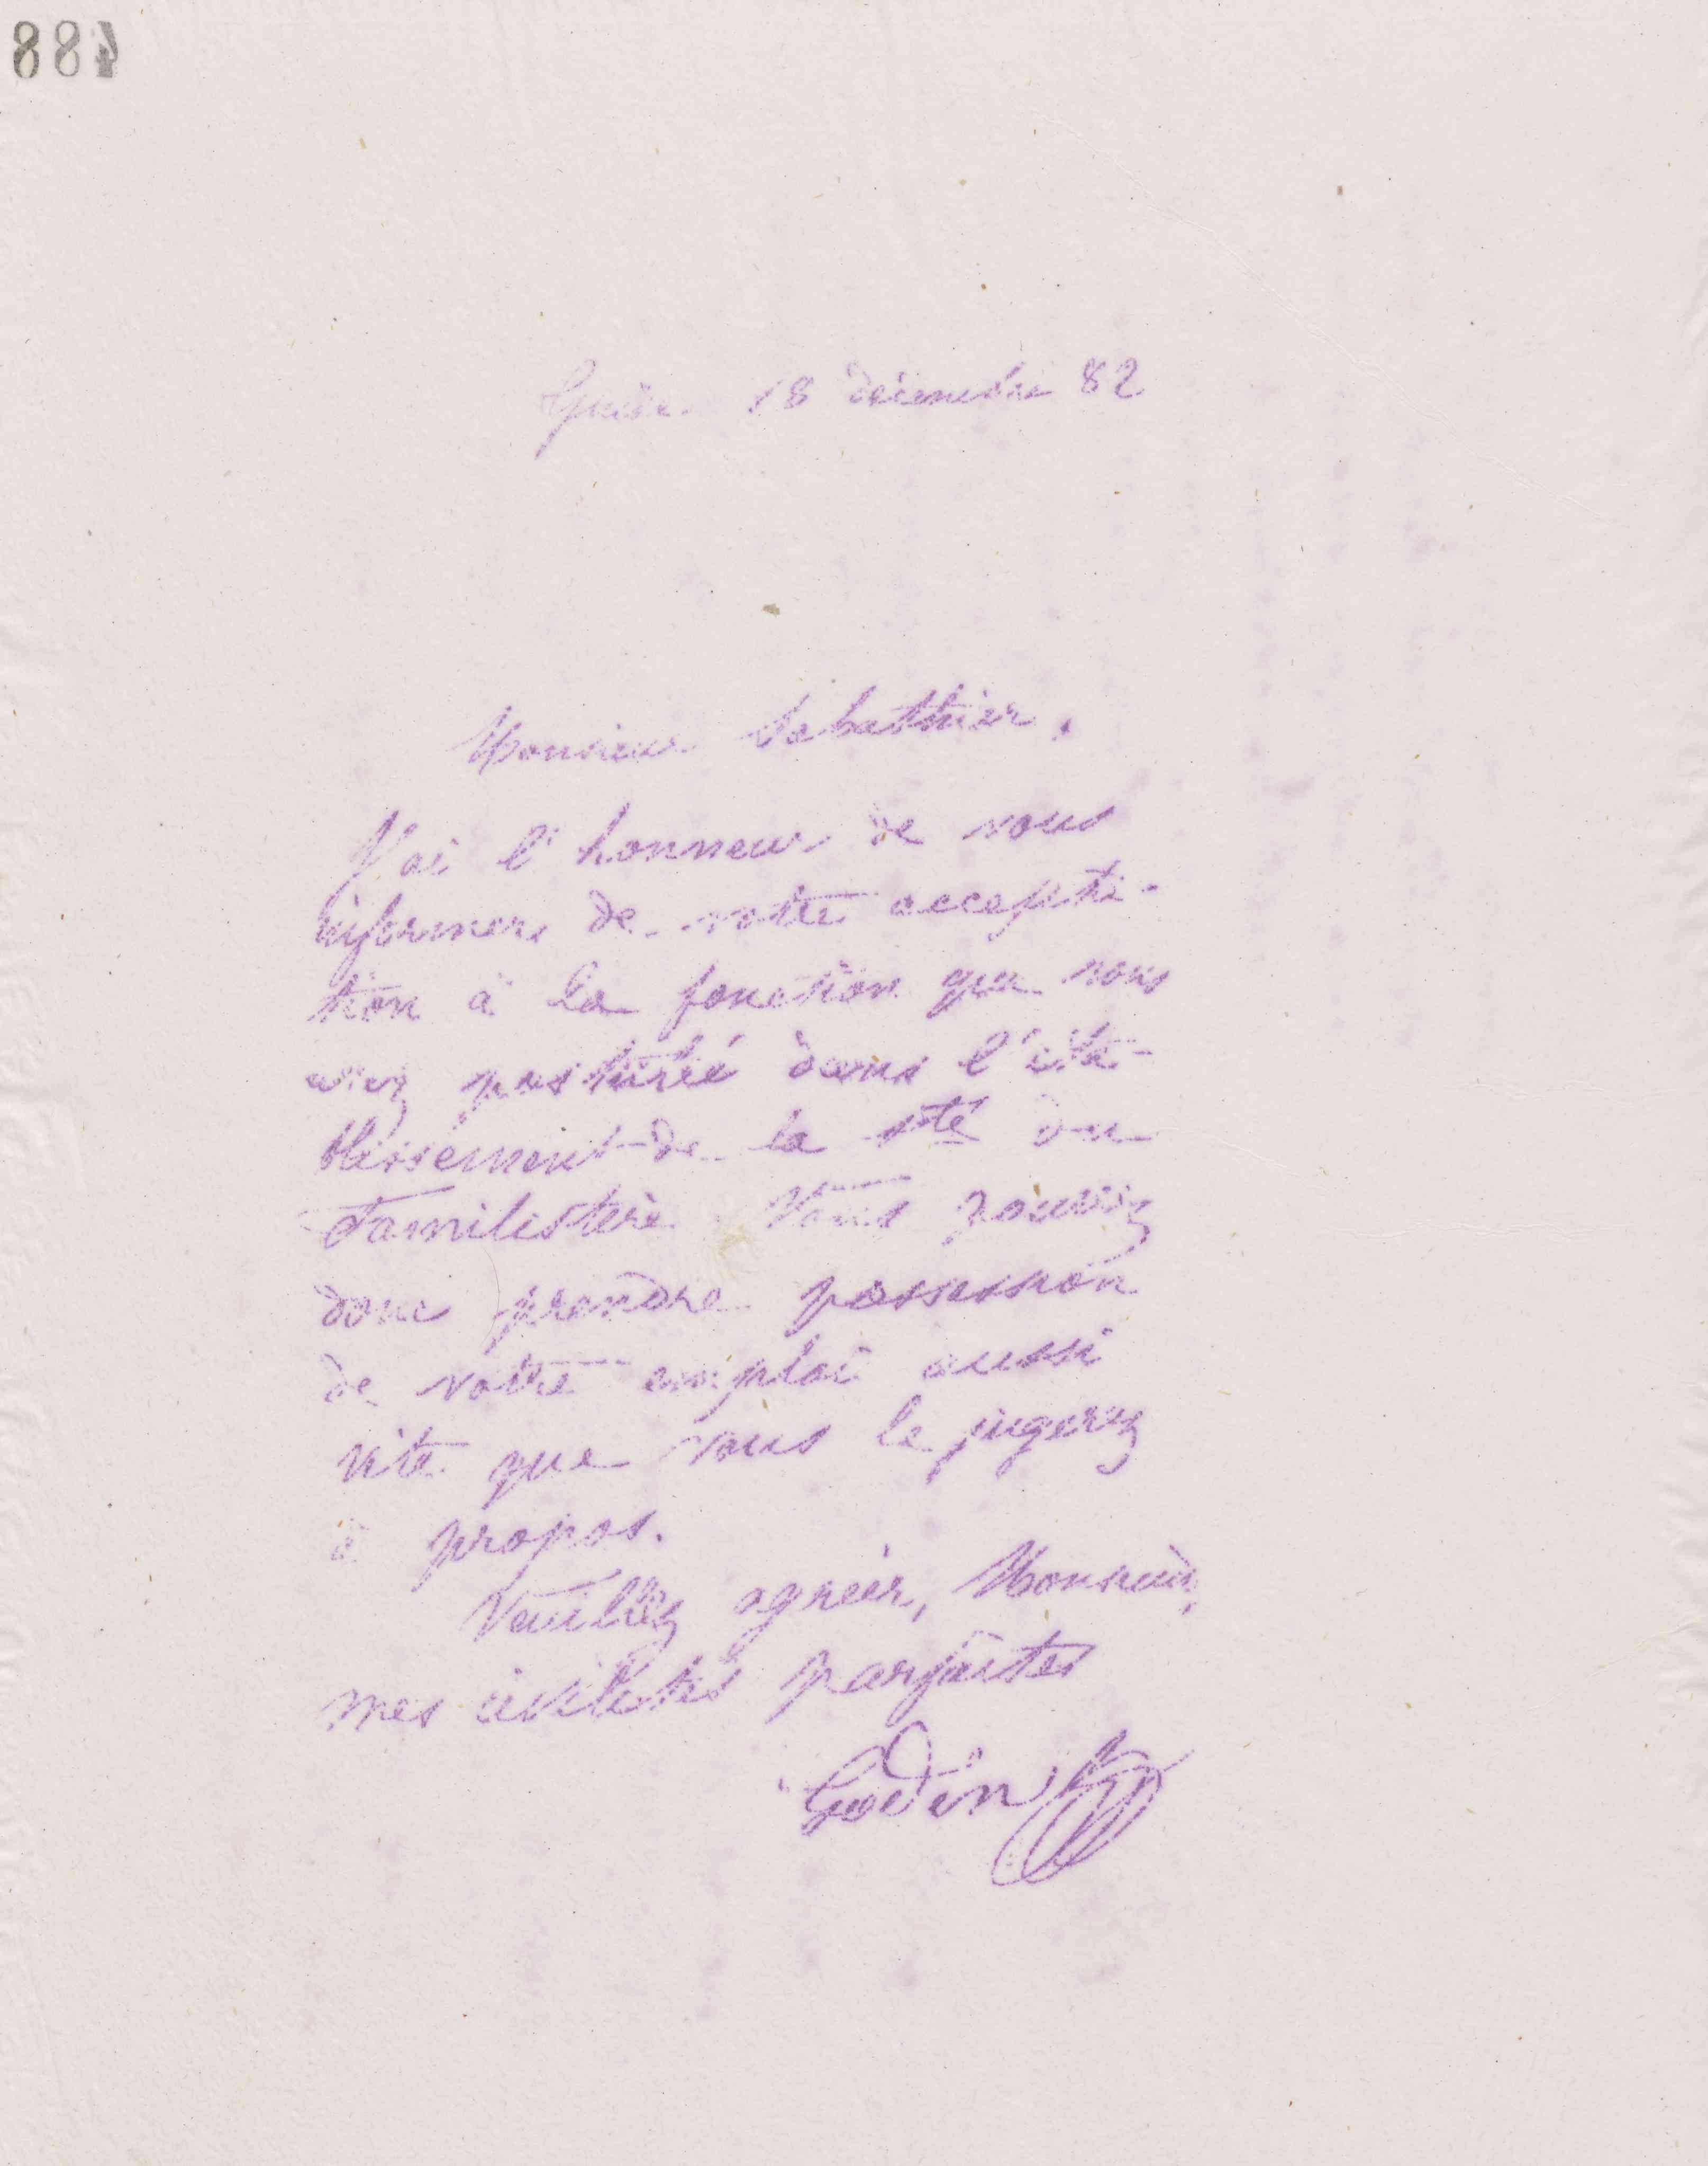 488
Guise 18 décembre 82
Monsieur Sabathier,
J'ai l'honneur de vous
informer de votre accepta-
tion à la fonction que vous
avez postulé dans l'éta-
blissement de la Sté du
Familistère. Vous pouvez
donc prendre possession
de votre emploi aussi
vite que vous le jugerez
à propos.
Veuillez agréer, Monsieur,
mes civilités parfaites
Godin